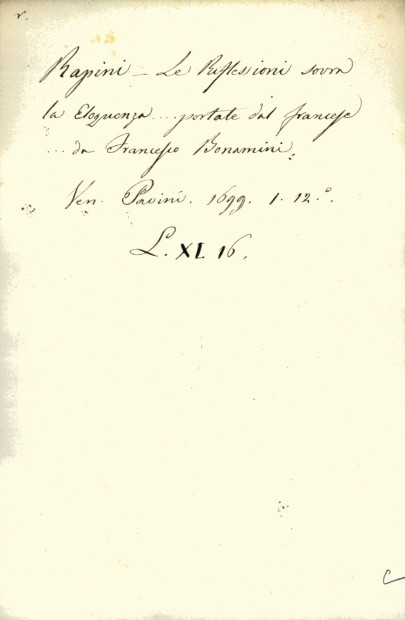 Rapini – Le Riflessioni sovra
la Eloquenza... portate dal francese
... da Francesco Bonamini.
Ven. Pavini. 1699. 1. 12.°.
L. XI. 16.
C